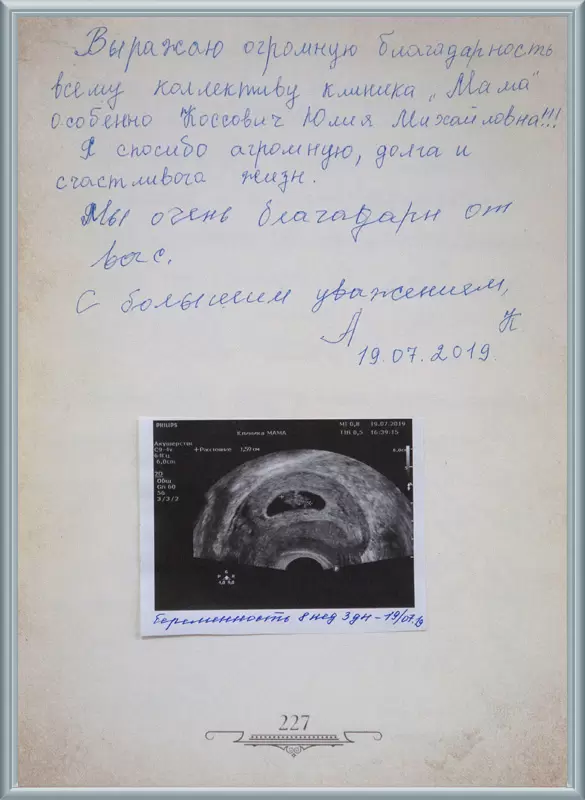 Выражаю огромную благодарность
всему коллективу клиника „Мама“
особенно Коссович Юлия Михайловна!!!
Я спосибо агромную, долга и
счастливога жизн.
Мы очень благадарн от
вас.
С большим уважением,
А К
19.07.2019.
PHILIPS
МГ0,8 19.07.2019
Клиника МАМА
ТІВ 0,5 16:39:15
Акушерсти
C9-4v
+ Расстояние 1,59 см
6,0cm
2D
Общ
Gn 60
56
3/3/2
беременность 8 нед 3 дн - 19/07.19
227